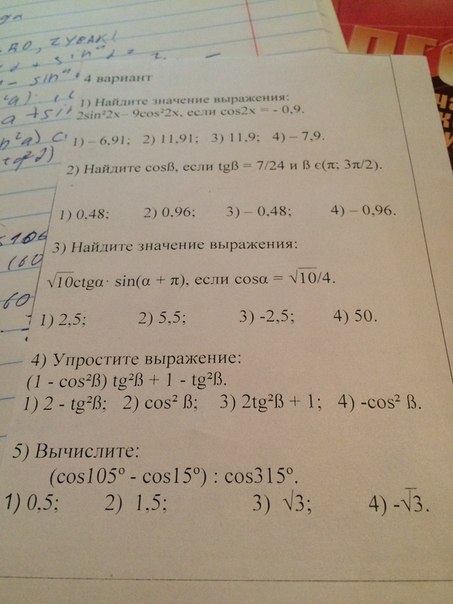 4 вариант
1) Найдите значение выражения:
2sin²2x– 9cos²2x, если cos2x = - 0,9.
1) – 6,91; 2) 11,91; 3) 11,9; 4) – 7,9.
2) Найдите cosß, если tgß = 7/24 и ß ϵ(π; 3π/2).
1) 0,48; 2) 0,96; 3) – 0,48; 4) – 0,96.
3) Найдите значение выражения:
√10ctgα· sin(α + π), если cosα = √10/4.
1) 2,5; 2) 5,5; 3) -2,5; 4) 50.
4) Упростите выражение:
(1 - cos²ß) tg²ß + 1 - tg²ß.
1) 2 - tg²ß; 2) cos² ß; 3) 2tg²ß + 1; 4) -cos² ß.
5) Вычислите:
(cos105º - cos15º) : cos315º.
1) 0,5; 2) 1,5; 3) √3; 4) -√3.